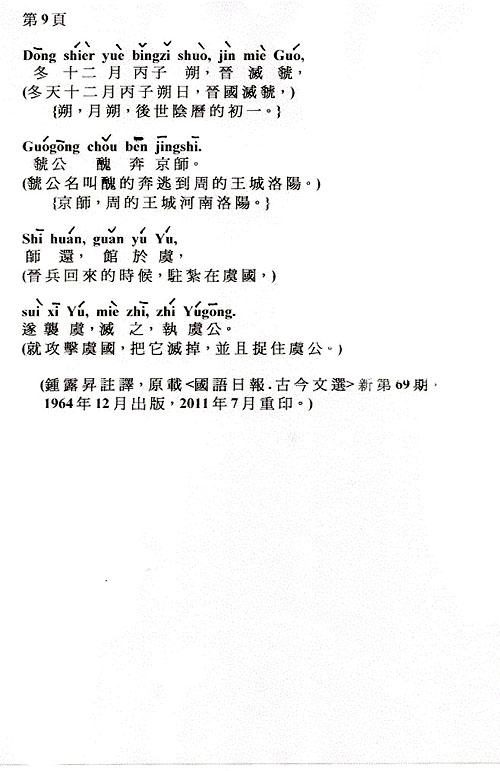 第9頁
Dōng shíèr yuè bǐngzǐ shuò, jìn miè Guó,
冬 十二 月 丙子 朔，晉 滅 虢，
(冬天十二月丙子朔日，晉國滅虢，)
{朔，月朔，後世陰曆的初一。}
Guógōng chǒu bēn jīngshī.
虢公 醜 奔 京師。
(虢公名叫醜的奔逃到周的王城洛陽。)
{京師，周的王城河南洛陽。}
Shī huán, guǎn yú Yú,
師 還， 館 於 虞，
(晉兵回來的時候，駐紮在虞國，)
suì xí Yú, miè zhī, zhí Yúgōng.
遂 襲 虞，滅 之，執 虞公。
(就攻擊虞國，把它滅掉，並且捉住虞公。)
(鍾露昇註譯，原載<國語日報.古今文選>新第69期，
1964年12月出版，2011年7月重印。)